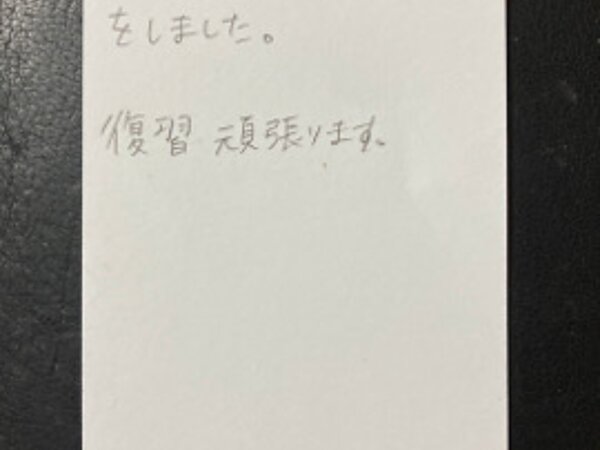 をしました。
復習 頑張ります。